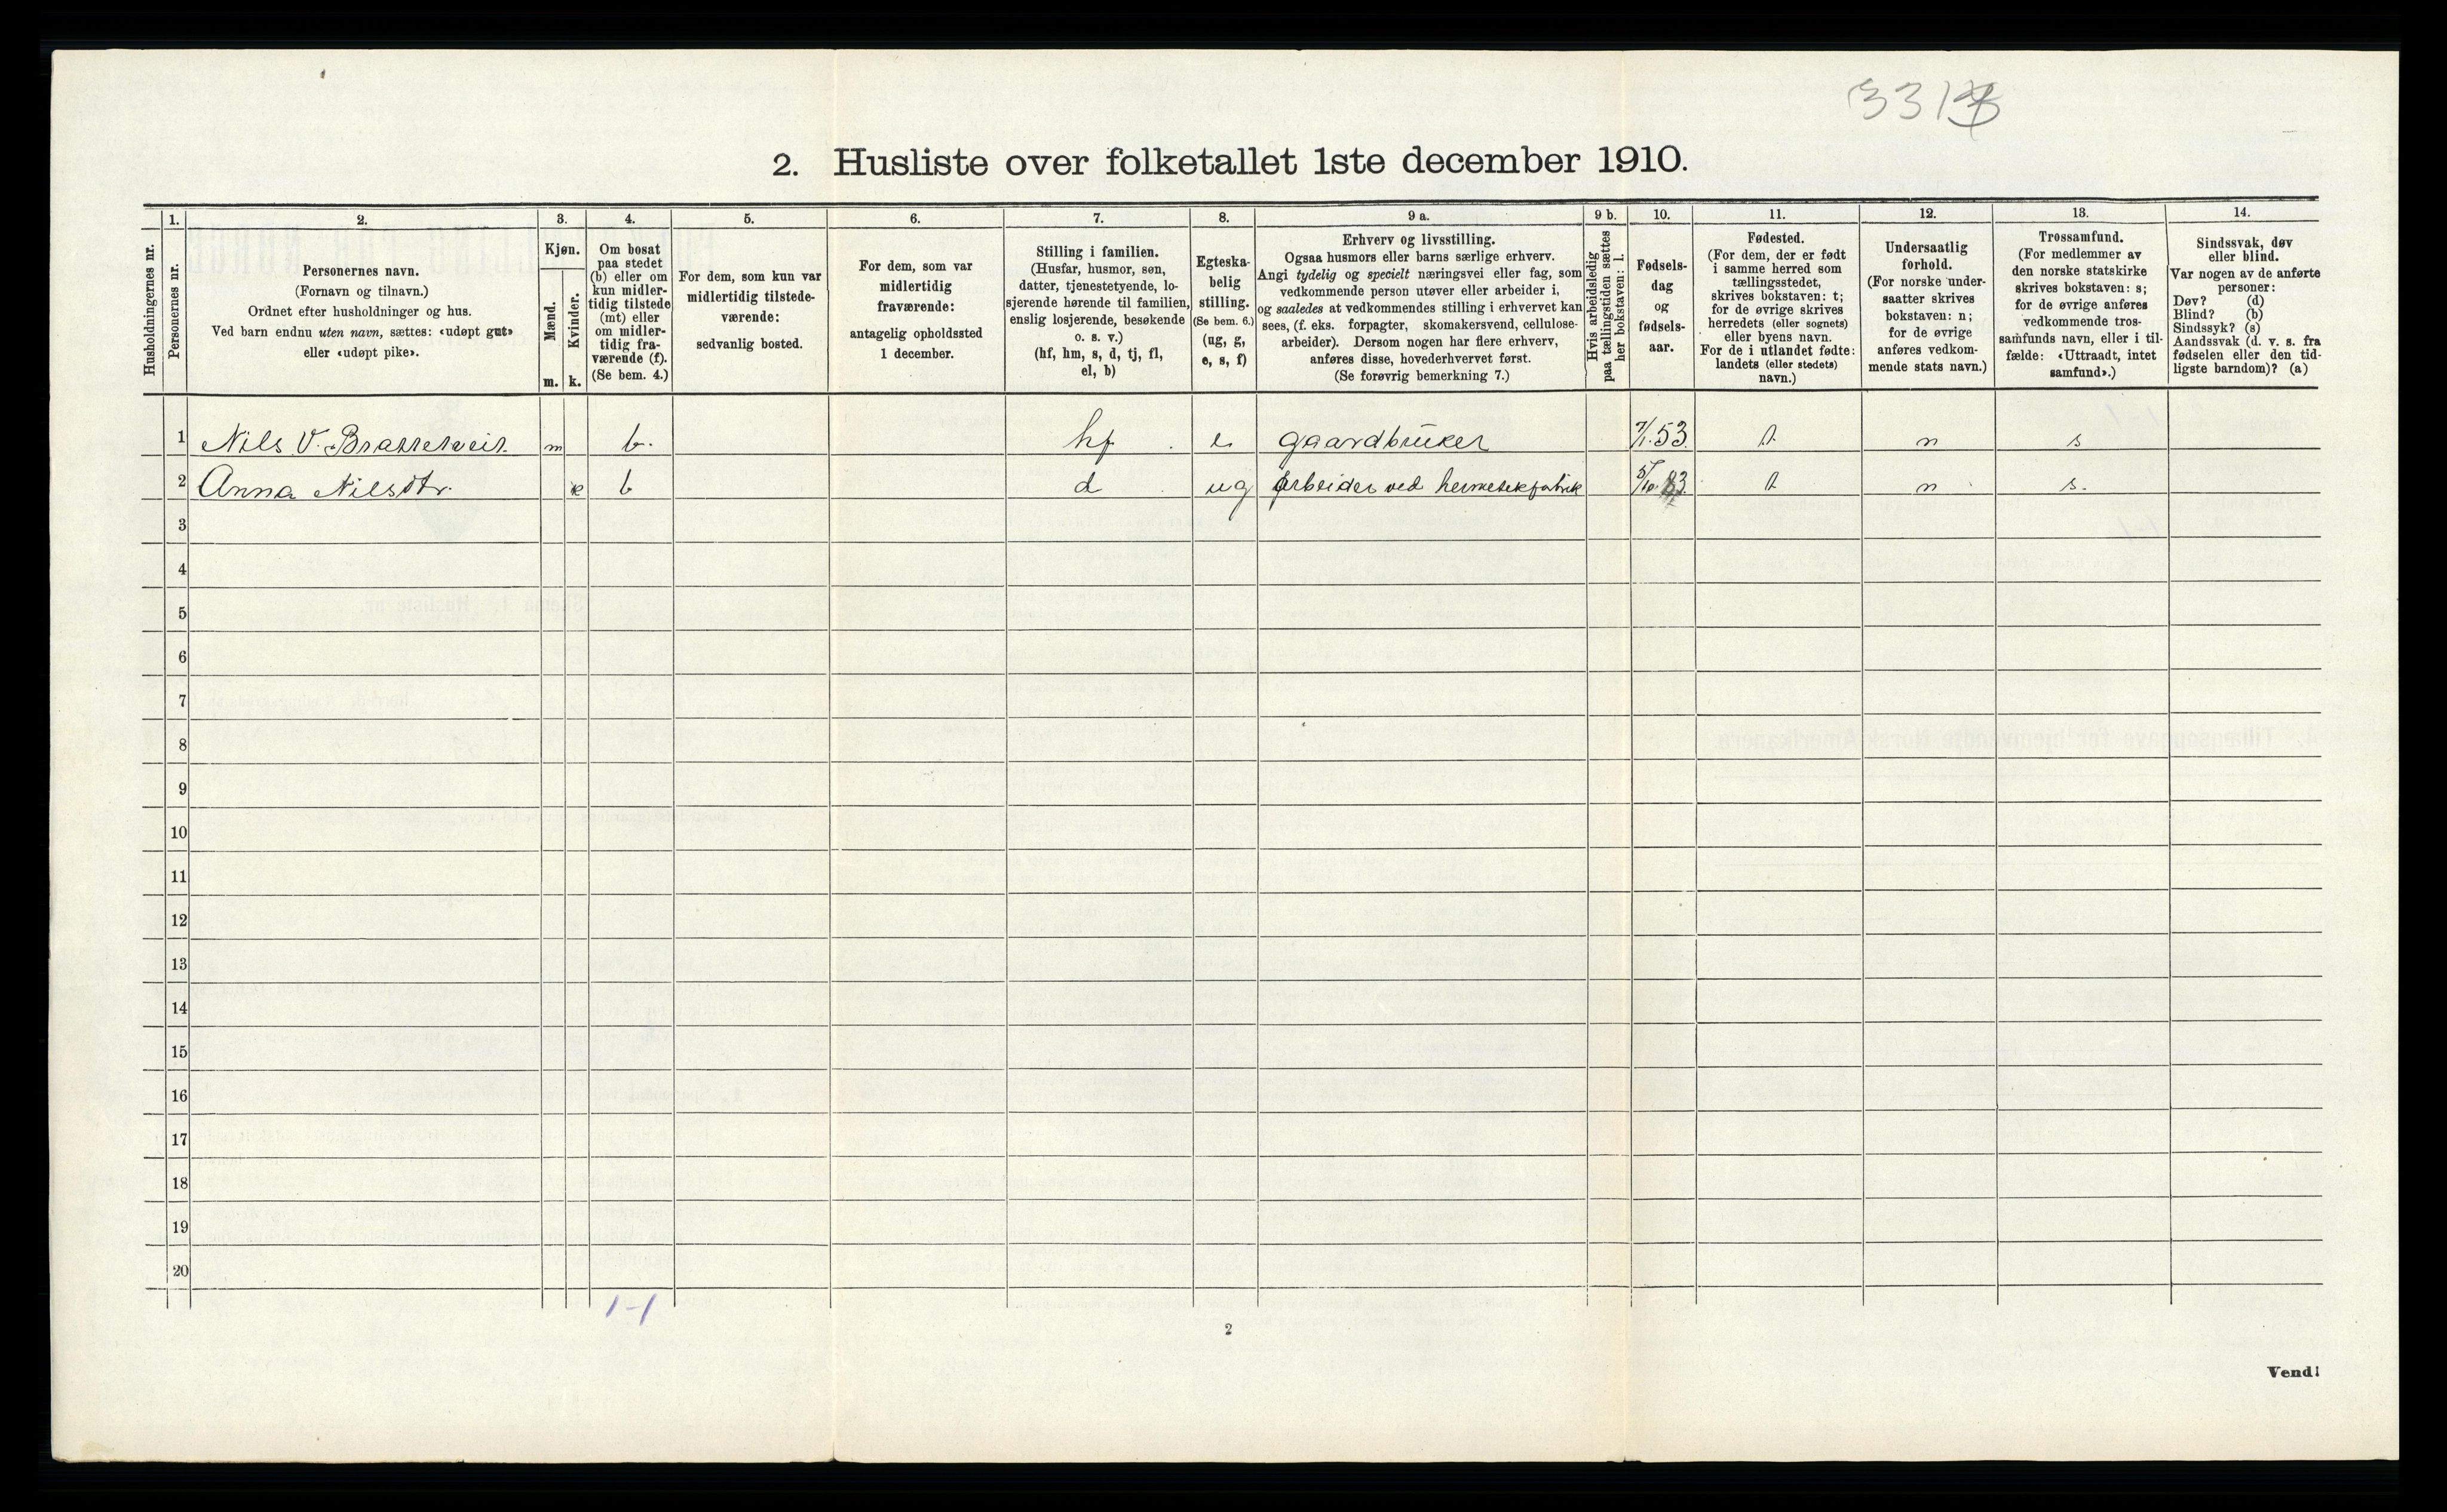 2. Husliste over folketallet 1ste december 1910.
Husholdningernes nr.
1.
Personernes nr.
2.
Personernes navn.
(Fornavn og tilnavn.)
Ordnet efter husholdninger og hus.
Ved barn endnu uten navn, sættes: «udøpt gut»
eller «udøpt pike».
3.
Kjøn.
Mænd.
Kvinder.
m.
k.
4.
Om bosat
paa stedet
(b) eller om
kun midler-
tidig tilstede
(mt) eller
om midler-
tidig fra-
værende (f).
(Se bem. 4.)
5.
For dem, som kun var
midlertidig tilstede-
værende:
sedvanlig bosted.
6.
For dem, som var
midlertidig
fraværende:
antagelig opholdssted
1 december.
7.
Stilling i familien.
(Husfar, husmor, søn,
datter, tjenestetyende, lo-
sjerende hørende til familien,
enslig losjerende, besøkende
o. s. v.)
(hf, hm, s, d, tj, fl,
el, b)
8.
Egteska-
belig
stilling.
(Se bem. 6.)
(ug, g,
e, s, f)
9 a.
Erhverv og livsstilling.
Ogsaa husmors eller barns særlige erhverv.
Angi tydelig og specielt næringsvei eller fag, som
vedkommende person utøver eller arbeider i,
og saaledes at vedkommendes stilling i erhvervet kan
sees, (f. eks. forpagter, skomakersvend, cellulose-
arbeider). Dersom nogen har flere erhverv,
anføres disse, hovederhvervet først.
(Se forøvrig bemerkning 7.)
9 b.
Hvis arbeidsledig
paa tællingstiden sættes
her bokstaven: l.
10.
Fødsels-
dag
og
fødsels-
aar.
11.
Fødested.
(For dem, der er født
i samme herred som
tællingsstedet,
skrives bokstaven: t;
for de øvrige skrives
herredets (eller sognets)
eller byens navn.
For de i utlandet fødte:
landets (eller stedets)
navn.)
12.
Undersaatlig
forhold.
(For norske under-
saatter skrives
bokstaven: n;
for de øvrige
anføres vedkom-
mende stats navn.)
13.
Trossamfund.
(For medlemmer av
den norske statskirke
skrives bokstaven: s;
for de øvrige anføres
vedkommende tros-
samfunds navn, eller i til-
fælde: «Uttraadt, intet
samfund».)
14.
Sindssvak, døv
eller blind.
Var nogen av de anførte
personer:
Døv? (d)
Blind? (b)
Sindssyk? (s)
Aandssvak (d. v. s. fra
fødselen eller den tid-
ligste barndom)? (a)
1 Nils V. m b. hf e gaardbruker 7/1.53. n s
2 Anna Nilsdtr. k b d ug Arbeider ved hermetikfabrik 83. n s.
3
4
5
6
7
8
9
10
11
12
13
14
15
16
17
18
19
20
1-1
2
Vend!